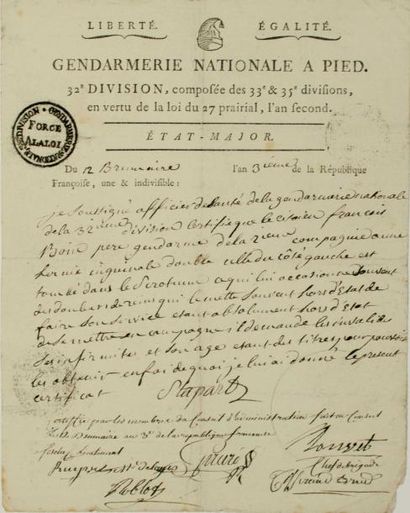 LIBERTÉ. ÉGALITÉ.
GENDARMERIE NATIONALE A PIED.
32e DIVISION, composée des 33e & 35e divisions,
en vertu de la loi du 27 prairial, l'an second.
ÉTAT-MAJOR.
GENDARMERIE NATIONALE DIVISION
FORCE
A LA LOI
Du 12 Brumaire l'an 3ieme de la République
Françoise, une & indivisible:
je soussigné officier de santé de la gendarmerie nationale
de la 32ieme division certifie que le citoien françois
pere gendarme de la compagnie a une
hernie inguinale double celle du côté gauche est
tombée dans le scrotum a qui lui occasionne souvent
des douleurs de rein qui le mette souvent hors d'état de
faire son service etant absolument hors d'état
de se mettre en campagne il demande les invalides
ses infirmites et son age etant des titres pour pouvoir
les obtenir en foi de quoi je lui ai donné le present
certificat
certifié par les membres du Conseil d'administration
Brumaire an 3e de la republique française
Chef de brigade